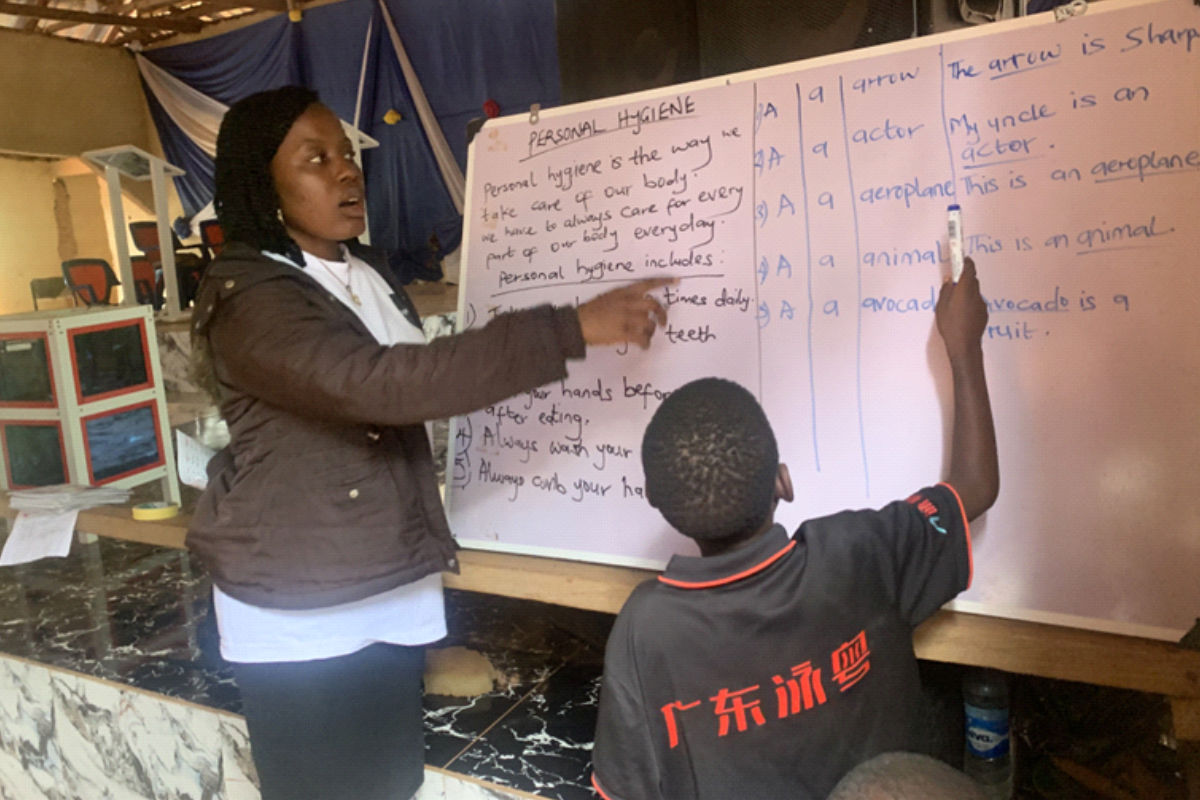 PERSONAL HYGIENE
Personal hygiene is the way we
take care of our body.
we have to always care for every
part of our body everyday.
Personal hygiene includes:
1)
times daily.
teeth
your hands
after eating.
4) Always wash your
5) Always comb your
1) A a arrow The arrow is Sharp
2) A a actor My uncle is an
actor.
3) A a aeroplane This is an aeroplane
4) A a animal This is an animal.
5) A a avocad avocado is a
广东泳粤